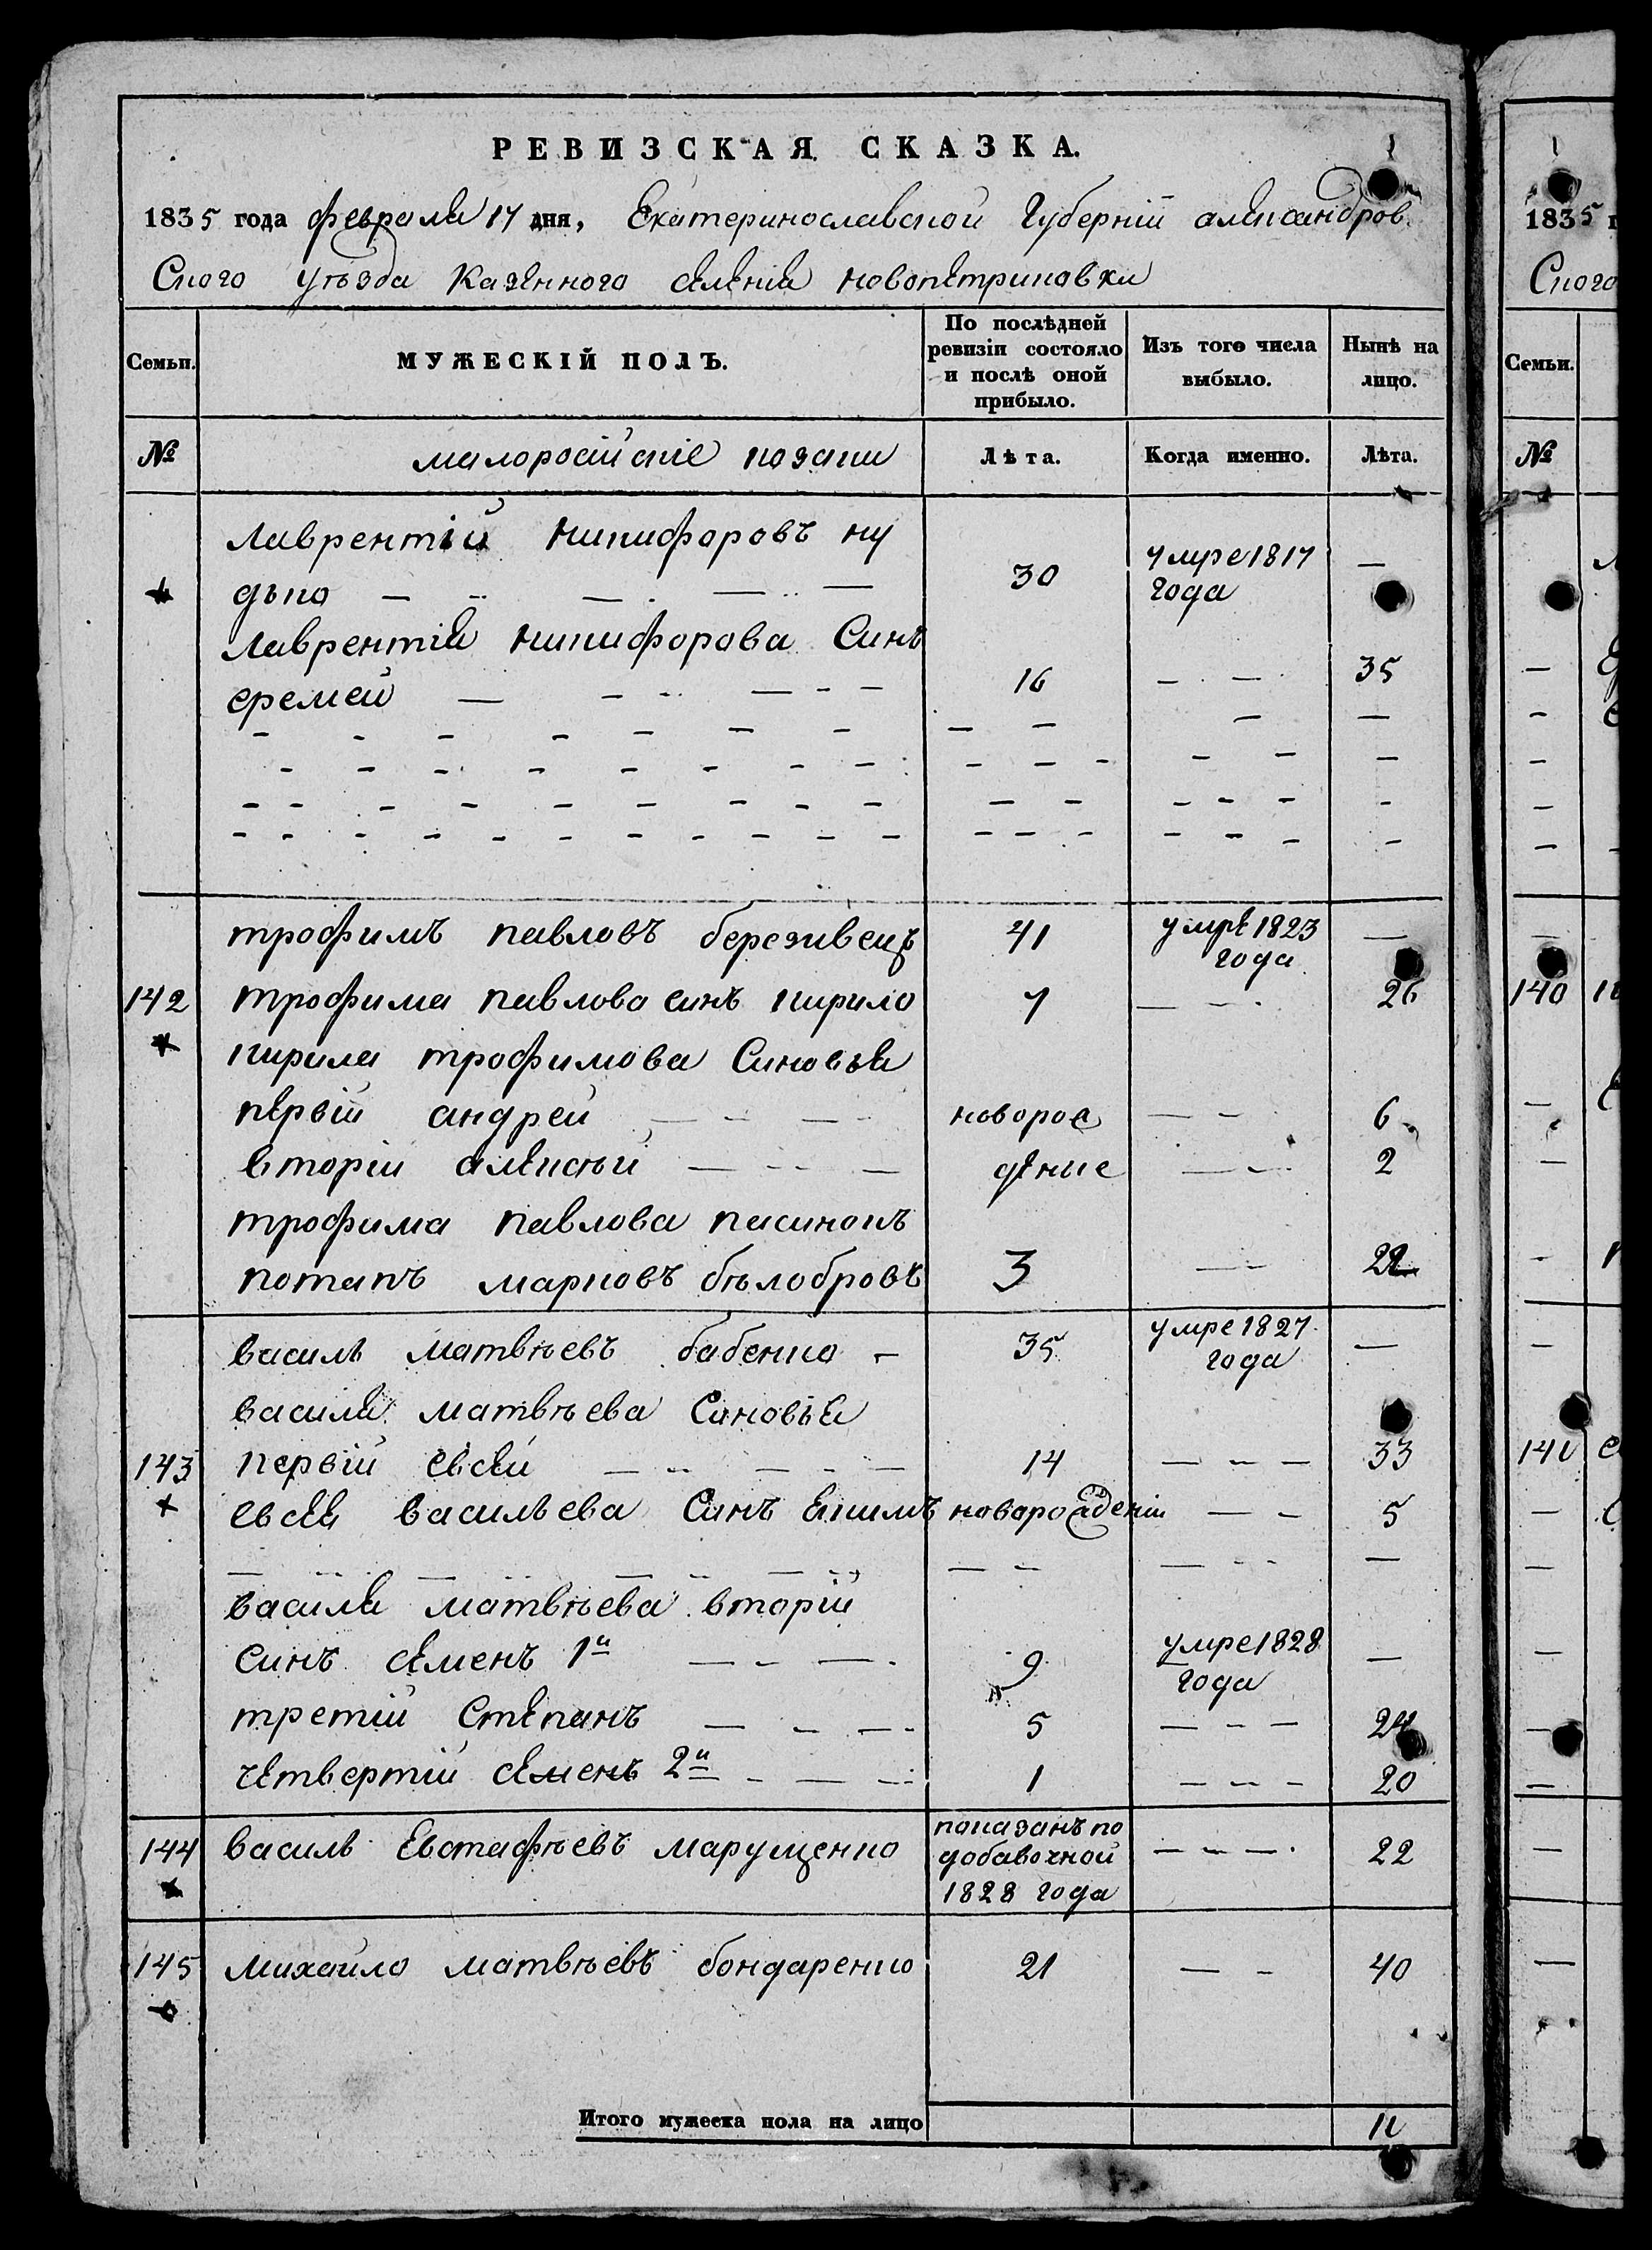 РЕВИЗСКАЯ СКАЗКА.
1835 года февраля 17 дня, Екатеринославской Губерніи александров
Ского Уъзда Казенного селенія новопетриковки
Семьи.
МУЖЕСКІЙ ПОЛЪ.
По послѣдней ревизіи состояло и послѣ оной прибыло.
Изъ того числа выбыло.
Нынѣ на лицо.
№ малоросійскіе козаки Лѣта. Когда именно. Лѣта.
Лаврентій никифоровъ ну 30 умре 1817 —
дько — — — — — года
Лаврентія никифорова Синъ
еремей — — — — 16 — — 35
трофимъ павловъ березивецъ 41 умре 1823 —
года
142 трофима павлова синъ кирило 7 — — 26
кирила трофимова Синовья
первій андрей — — — новорож — — 6
вторій алексъй — — — деніе — — 2
трофима павлова пасинокъ
потапъ марковъ бълобровъ 3 — — 22
василь матвъевъ бабенко — 35 умре 1827 —
года
василя матвъева Синовья
143 первій евсей — — — — 14 — — — 33
евсея васильева Синъ екимъ новарожденій — — 5
василя матвъева вторій
синъ семенъ 1й — — — 9 умре 1828 —
года
третій Степанъ — — — 5 — — — 24
четвертій семенъ 2й — — — 1 — — — 20
144 василь Евстафъевъ марущенко показанъ по — — — 22
добавочной
1828 года
145 михайло матвъевъ бондаренко 21 — — 40
Итого мужеска пола на лицо 11
1835 г
Ского
Семьи.
№
140
141